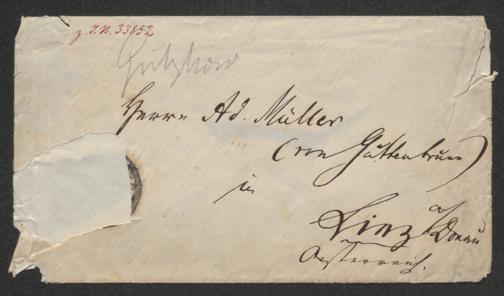 z. I.N. 33852
Gutzkow
Herrn Ad. Müller
(von Guttenbrunn)
in
Linz a/Donau
Oesterreich.